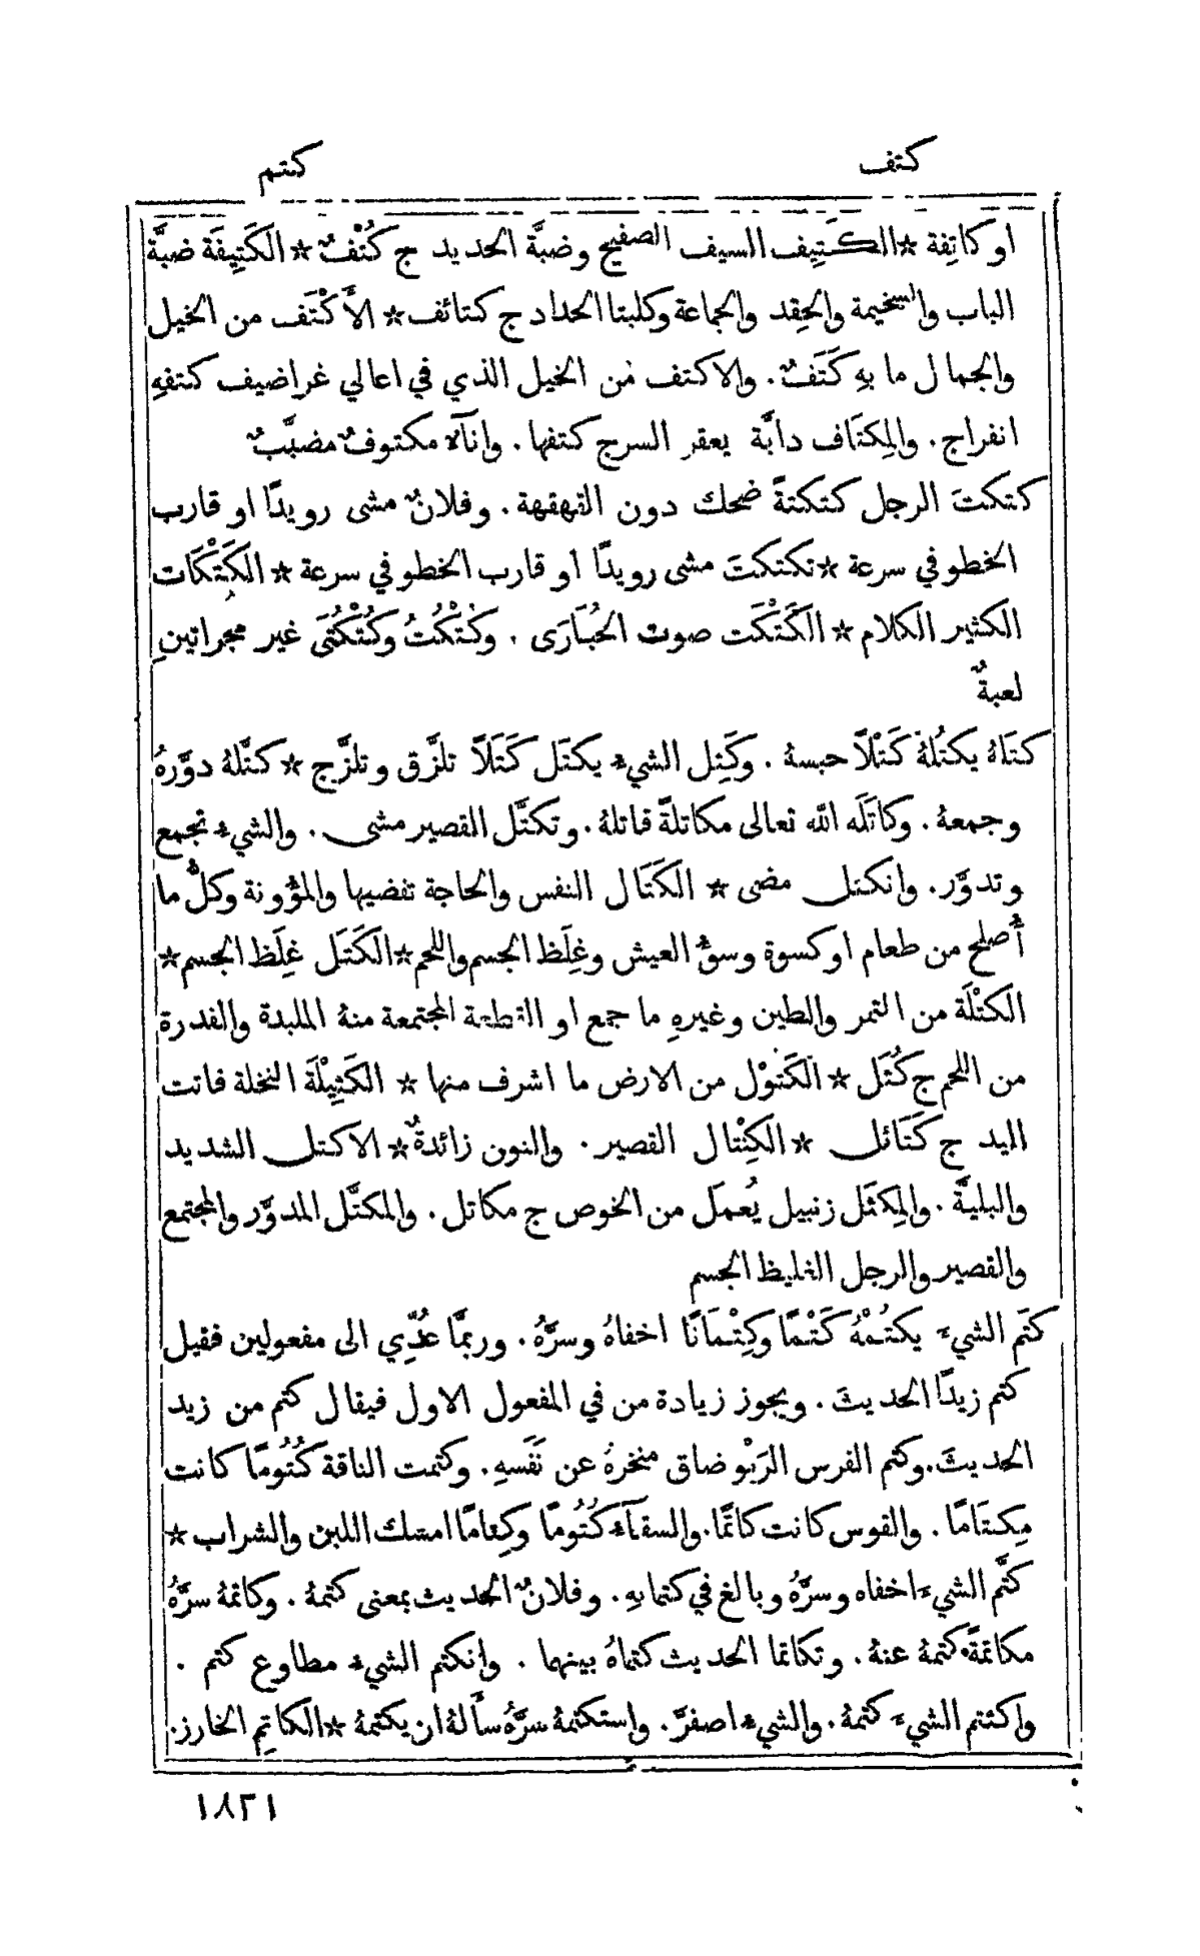 كتف
كتم
او كاتِفة * الكَتِيف السيف الصفيح وضبَّة الحديد ج كُتْفٌ * الكَتِيفَة ضبَّة
الباب والسخيمة والحِقد والجماعة وكلبتا الحداد ج كتائف * الأَكْتَف من الخيل
والجمال ما بهِ كَتَفٌ. والاكتف من الخيل الذي في اعالي غراضيف كتفهِ
انفراج. والمِكتَاف دابَّة يعقر السرج كتفها. وانآءٌ مكتوفٌ مضبَّبٌ
كتكتَ الرجل كتكتةً ضحك دون القهقهة. وفلانٌ مشى رويدًا او قارب
الخطو في سرعة * تكتكتَ مشى رويدًا او قارب الخطو في سرعة * الكَتْكَات
الكثير الكلام * الكَتْكَت صوت الحُبَارَى. وكُتْكُتُ وكُتْكُتَى غير مجراتينِ
لعبةٌ
كتَلهُ يكتُلهُ كَتْلًا حبسهُ. وكَتِل الشيءُ يكتَل كَتَلًا تلزَّق وتلزَّج * كتَّلهُ دوَّرهُ
وجمعهُ. وكاتَلَه الله تعالى مكاتلةً قاتلهُ. وتكتَّل القصير مشى. والشيءُ تجمع
وتدوَّر. وانكتل مضى * الكَتَال النفس والحاجة تقضيها والمؤونة وكلُّ ما
أُصلح من طعام او كسوة وسوُّ العيش وغِلَظ الجسم واللحم * الكَتَل غِلَظ الجسم *
الكتْلَة من التمر والطين وغيرهِ ما جمع او القطعة المجتمعة منهُ الملبدة والفدرة
من اللحم ج كُتَل * الكَتوْل من الارض ما اشرف منها * الكَتِيْلَة النخلة فاتت
اليد ج كَتَائل * الكِنْتال القصير. والنون زائدةٌ * الاكتل الشديد
والبليَّة. والمِكتَل زنبيل يُعمَل من الخوص ج مكاتل. والمكتَّل المدوَّر والمجتمع
والقصير والرجل الغليظ الجسم
كتَم الشيءَ يكتُمْهُ كَتْمًا وكِتْمَانًا اخفاهُ وسرَّهُ. وربَّما عُدِّي الى مفعولين فقيل
كتم زيدًا الحديثَ. ويجوز زيادة من في المفعول الاول فيقال كتم من زيد
الحديثَ. وكتم الفرس الرَبْو ضاق منخرهُ عن نَفَسهِ. وكتمت الناقة كُتُومًا كانت
مِكتَامًا. والقوس كانت كاتمًا. والسقآءُ كُتُومًا وكِتامًا امسك اللبن والشراب *
كتَّم الشيءَ اخفاه وسرَّهُ وبالغ في كتمانهِ. وفلانٌ الحديث بمعنى كتمهُ. وكاتمهُ سرَّهُ
مكاتمةً كتمهُ عنهُ. وتكاتما الحديث كتماهُ بينهما. وانكتم الشيءُ مطاوع كتم.
واكتتم الشيءَ كتمهُ. والشيءُ اصفرَّ. واستكتمهُ سرَّهُ سأَلهُ ان يكتمهُ * الكاتِم الخارز.
١٨٢١